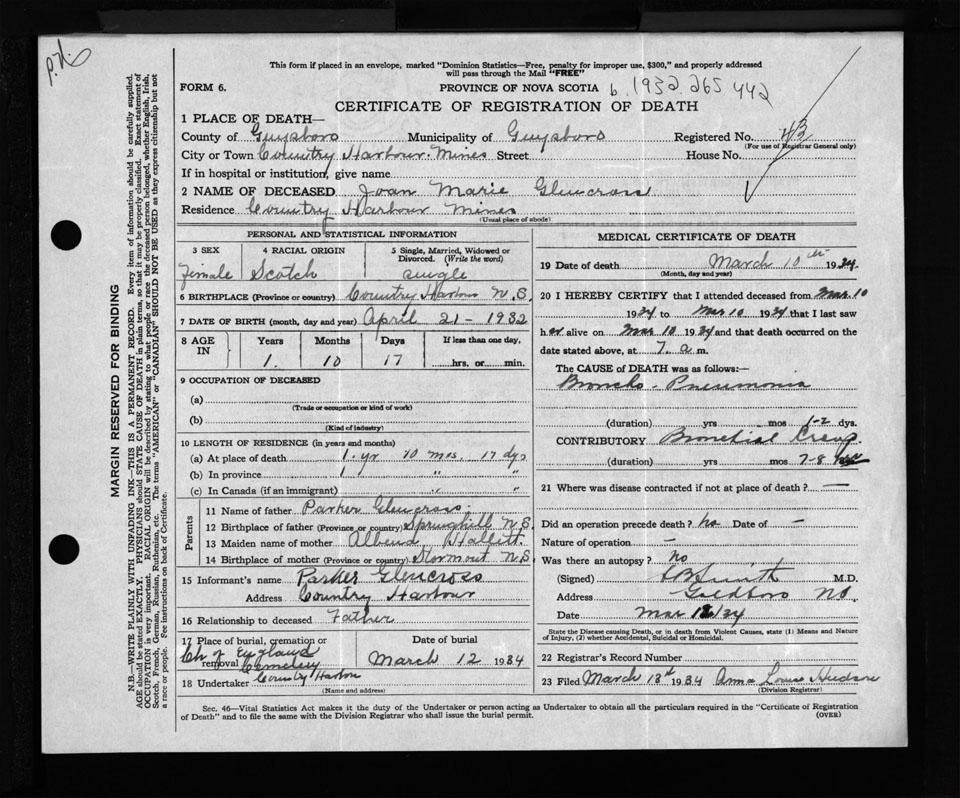 P.N.
This form if placed in an envelope, marked "Dominion Statistics—Free, penalty for improper use, $300," and properly addressed
will pass through the Mail "FREE"
FORM 6. PROVINCE OF NOVA SCOTIA b. 1932 265 442
CERTIFICATE OF REGISTRATION OF DEATH
1 PLACE OF DEATH—
County of Guysboro Municipality of Guysboro Registered No. 43
(For use of Registrar General only)
City or Town Country Harbour Mines Street House No.
If in hospital or institution, give name
2 NAME OF DECEASED Joan Marie Glencross
Residence Country Harbour Mines
(Usual place of abode)
PERSONAL AND STATISTICAL INFORMATION
3 SEX 4 RACIAL ORIGIN 5 Single, Married, Widowed or
Divorced. (Write the word)
Female Scotch single
6 BIRTHPLACE (Province or country) Country Harbour N.S.
7 DATE OF BIRTH (month, day and year) April 21 - 1932
8 AGE IN Years Months Days If less than one day,
1 10 17 hrs. or min.
9 OCCUPATION OF DECEASED
(a)
(Trade or occupation or kind of work)
(b)
(Kind of industry)
10 LENGTH OF RESIDENCE (in years and months)
(a) At place of death 1 yr 10 mos. 17 dys
(b) In province 1 " "
(c) In Canada (if an immigrant) " "
Parents
11 Name of father Parker Glencross
12 Birthplace of father (Province or country) Springhill N.S.
13 Maiden name of mother Hallett
14 Birthplace of mother (Province or country) Stormont N.S.
15 Informant's name Parker Glencross
Address Country Harbour
16 Relationship to deceased Father
17 Place of burial, cremation or removal Date of burial
Ch of England Cemetery March 12 1934
Country Harbor
18 Undertaker
(Name and address)
MEDICAL CERTIFICATE OF DEATH
19 Date of death March 10th 1934
(Month, day and year)
20 I HEREBY CERTIFY that I attended deceased from Mar. 10
1934 to Mar 10 1934 that I last saw
her alive on Mar 10 1934 and that death occurred on
date stated above, at 7. a m.
The CAUSE of DEATH was as follows:—
Broncho-Pneumonia
(duration) yrs mos 1-2 dys.
CONTRIBUTORY Bronchial Croup
(duration) yrs mos 7-8
21 Where was disease contracted if not at place of death? —
Did an operation precede death? no Date of —
Nature of operation —
Was there an autopsy? no
(Signed) Smith M.D.
Address Goldboro NS.
Date Mar 12/34
State the Disease causing Death, or in death from Violent Causes, state (1) Means and Nature
of Injury, (2) whether Accidental, Suicidal or Homicidal.
22 Registrar's Record Number
23 Filed March 13th 1934 Anna Louise Hudson
(Division Registrar)
Sec. 46—Vital Statistics Act makes it the duty of the Undertaker or person acting as Undertaker to obtain all the particulars required in the "Certificate of Registration
of Death" and to file the same with the Division Registrar who shall issue the burial permit. (OVER)
MARGIN RESERVED FOR BINDING
N.B.—WRITE PLAINLY WITH UNFADING INK—THIS IS A PERMANENT RECORD. Every item of information should be carefully supplied.
AGE should be stated EXACTLY. PHYSICIANS should STATE CAUSE OF DEATH in plain terms, so that it may be properly classified. Exact statement of
OCCUPATION is very important. RACIAL ORIGIN will be described by stating to what people or race the deceased person belonged, whether English, Irish,
Scotch, French, German, Russian, Ruthenian, etc. The terms "AMERICAN" or "CANADIAN" SHOULD NOT BE USED as they express citizenship but not
a race or people. See instructions on back of Certificate.